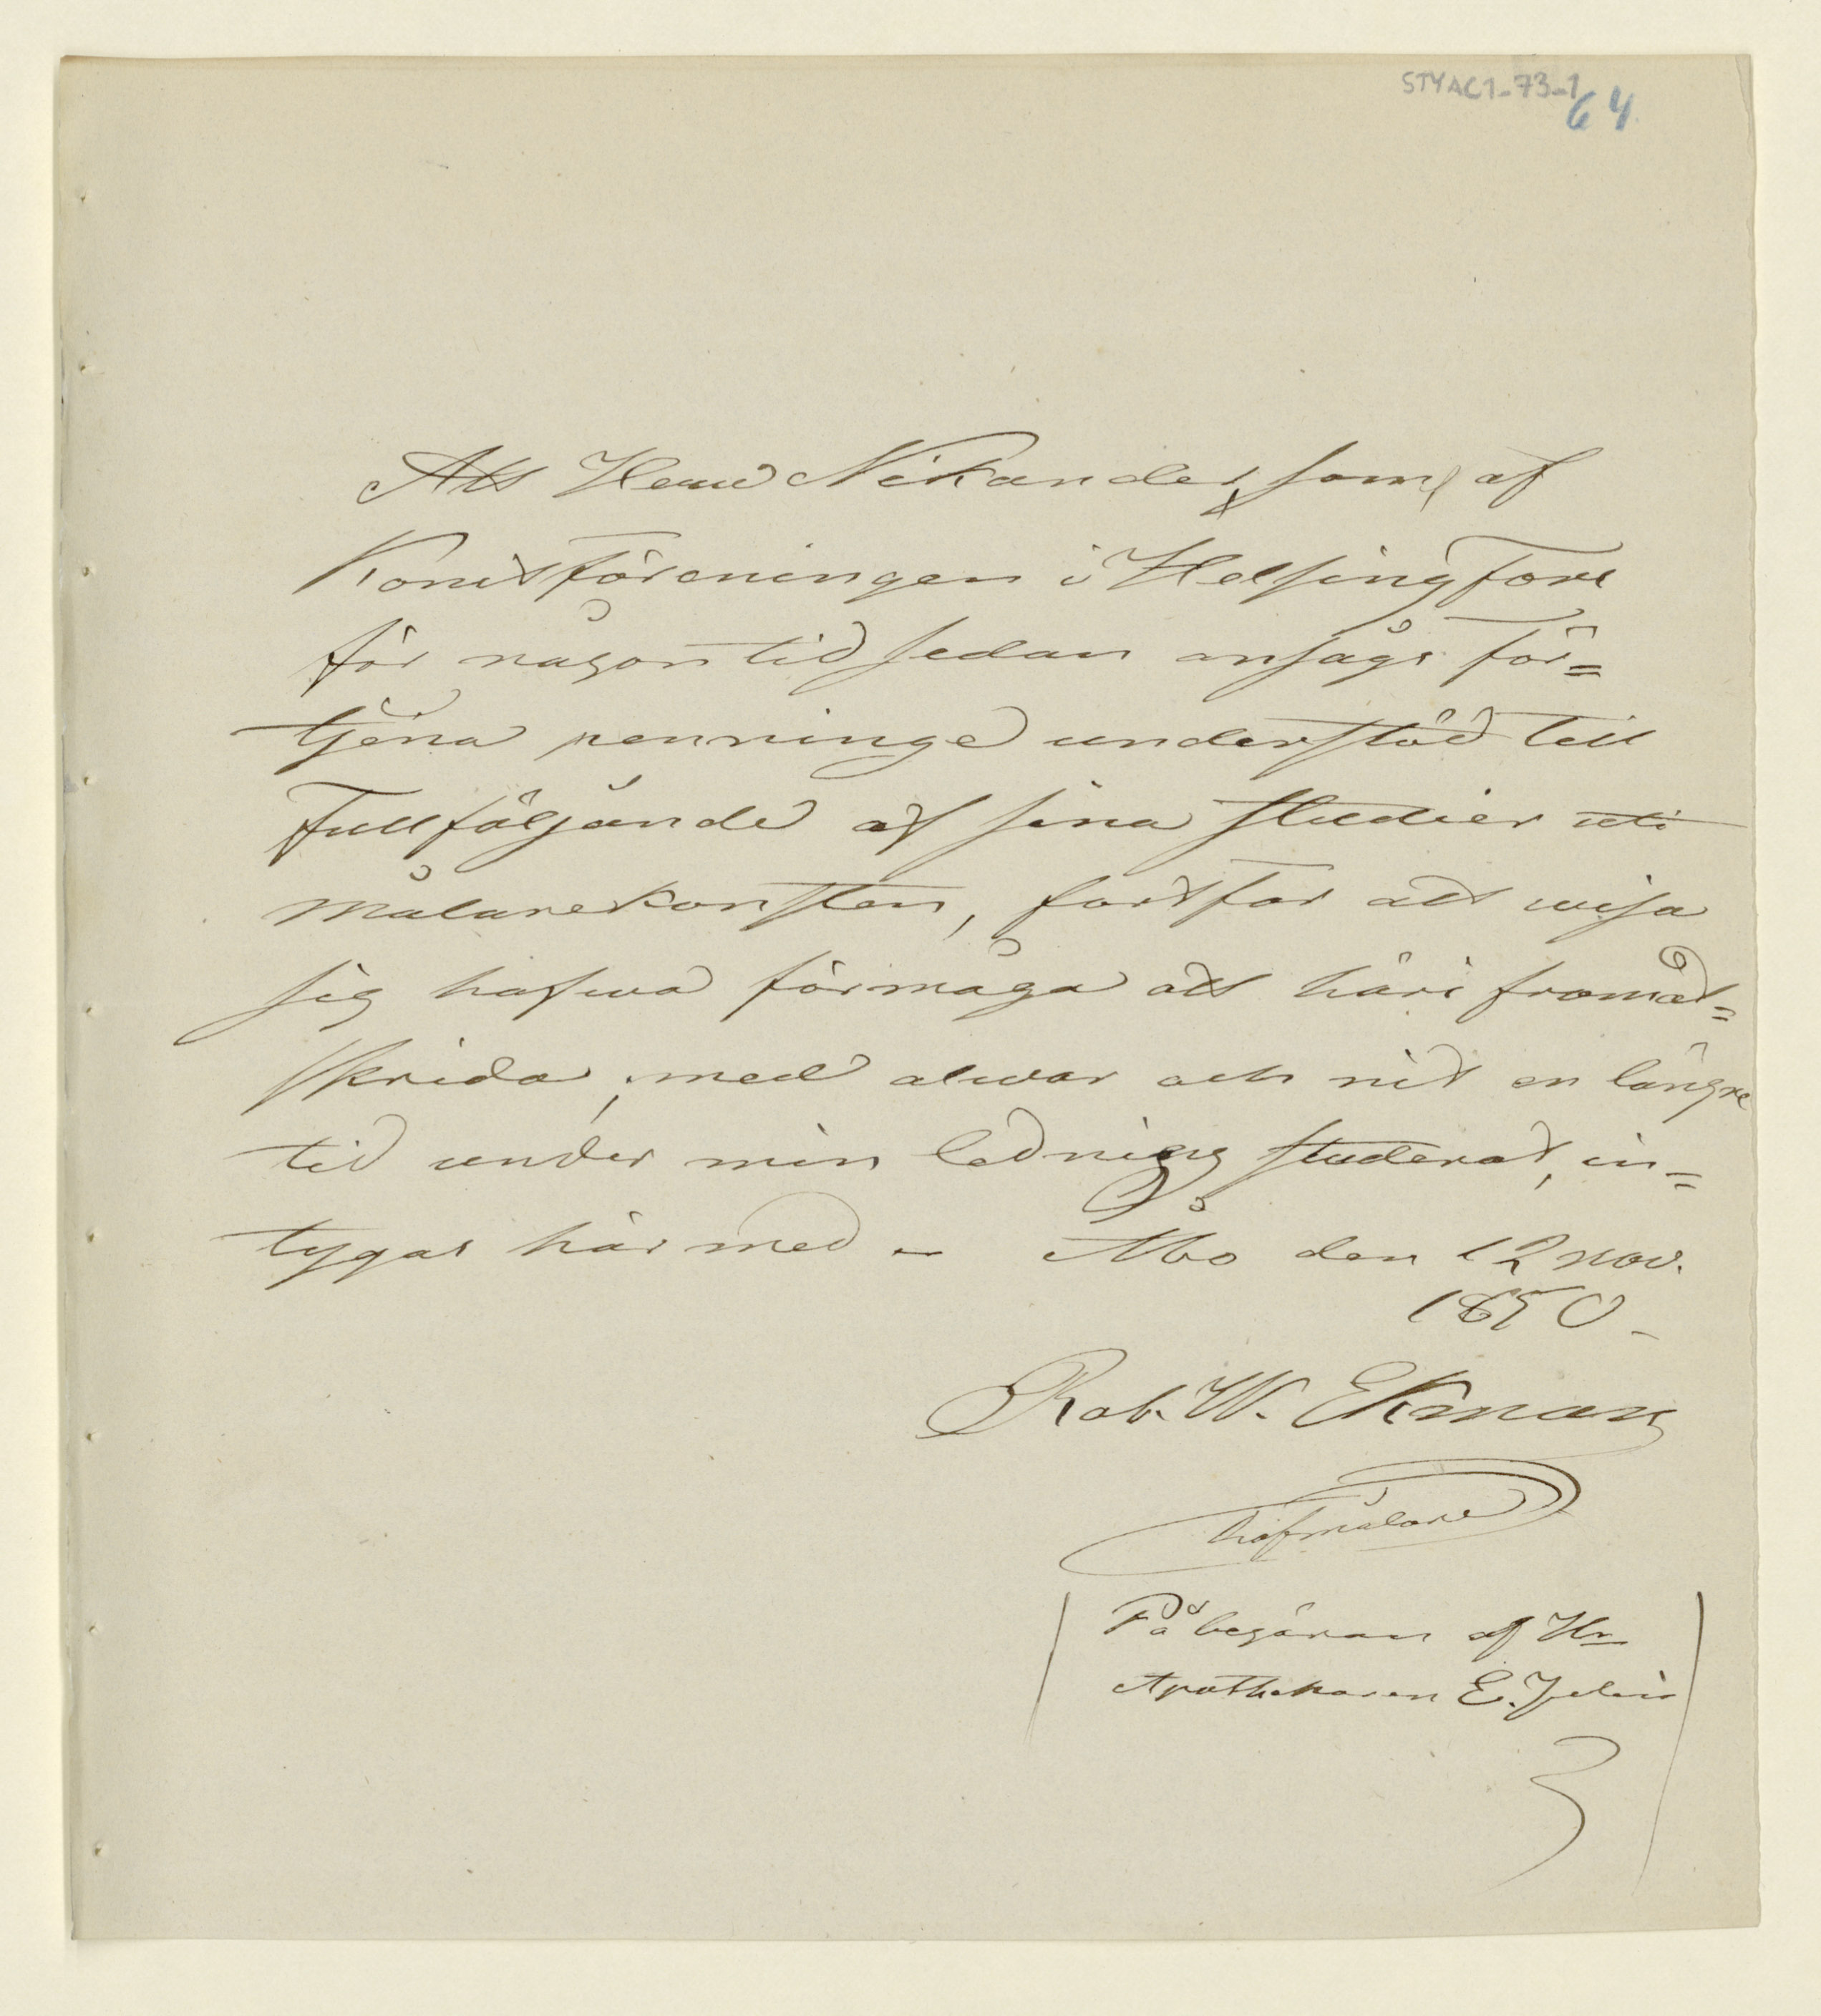 STYAC1-73-1
64
Att Herr Nikander, som af
Konstföreningen i Helsingfors
för någon tid sedan ansågs för=
tjena penninge understöd till
fullföljande af sina studier uti
målarekonsten, fortfar att wisa
sig hafwa förmåga att häri framåt=
skrida, med alwar och nit en längre
tid under min ledning studerat, in=
tygas härmed – Åbo den 12 nov.
1850 –
Rob. W. Ekman
hofmålare
På begäran af Hr
Apothekaren E. Julin